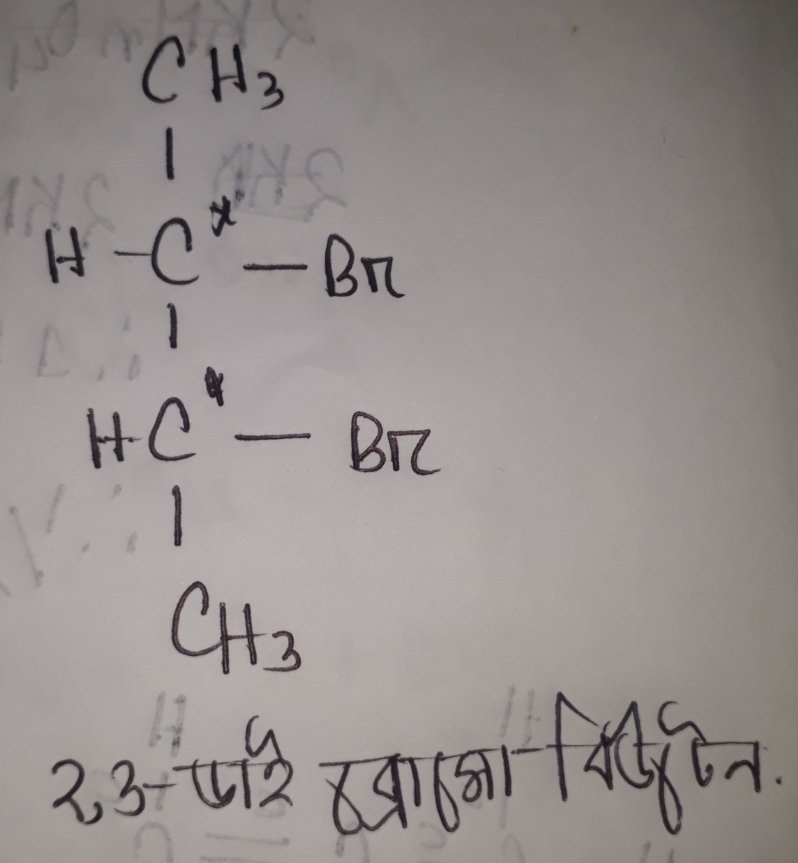 CH3
|
H - C* - Br
|
HC* - Br
|
CH3
2,3-ডাই ব্রোমো-বিউটেন.